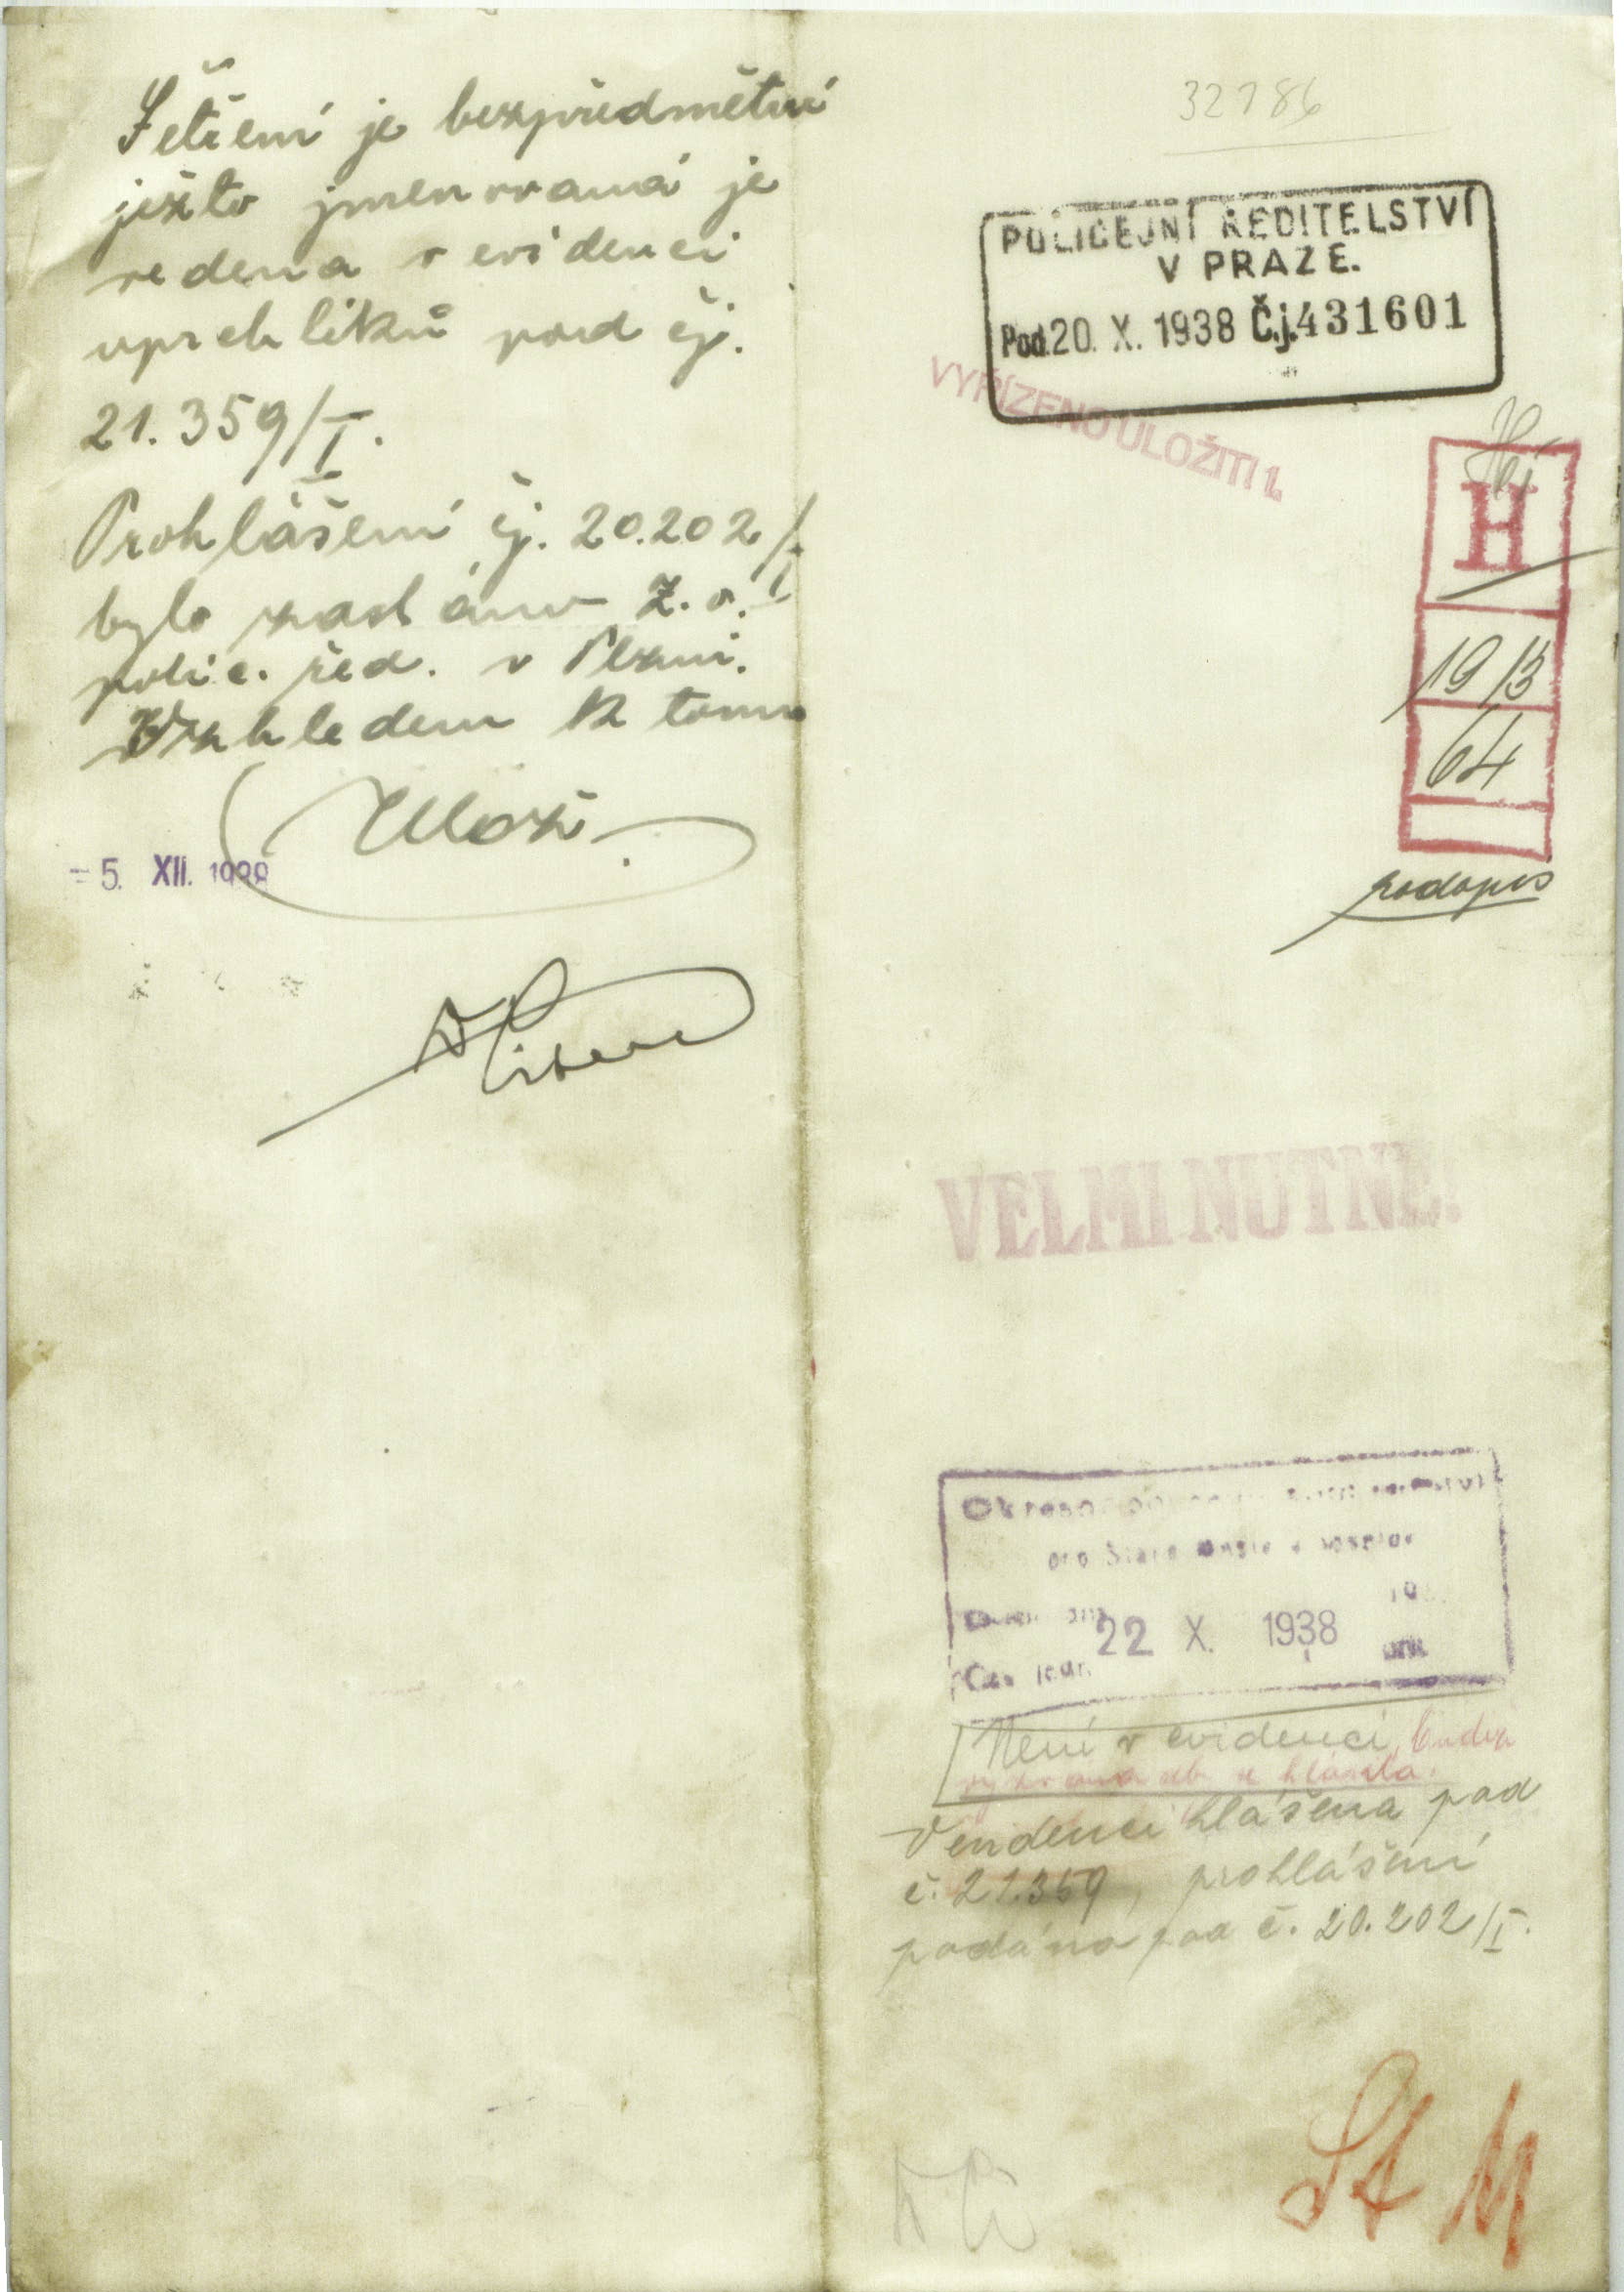 Šetření je bezpředmětné
ježto jmenovaná je
vedena v evidenci
uprchlíků pod čj.
21.359/I.
Prohlášení čj. 20.202/I
bylo zasláno Z. o.
polic. řed. v Plzni.
Vzhledem k tomu
Uložiti.
- 5. XII. 1938
32786
POLICEJNÍ ŘEDITELSTVÍ
V PRAZE.
Pod. 20. X. 1938 Č.j. 431601
VYŘÍZENO ULOŽITI 1.
H
19/3
64
podopis
VELMI NUTNÉ.
pro Staré Město a Josefov
22 X. 1938
Není v evidenci, bude
se hlásila.
V evidenci hlášena pod
č. 21.359, prohlášení
podáno pod č. 20.202/I.
St M